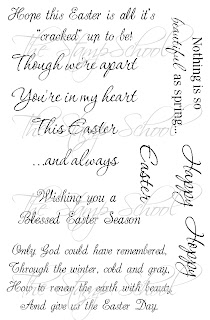 Hope this Easter is all it's
"cracked" up to be!
Though we're apart
You're in my heart
This Easter
...and always
Wishing you a
Blessed Easter Season
Only God could have remembered,
Through the winter, cold and gray,
How to renew the earth with beauty,
And give us the Easter Day.
Nothing is so
beautiful as spring...
Happy Hoppy
Easter
The Stamp School